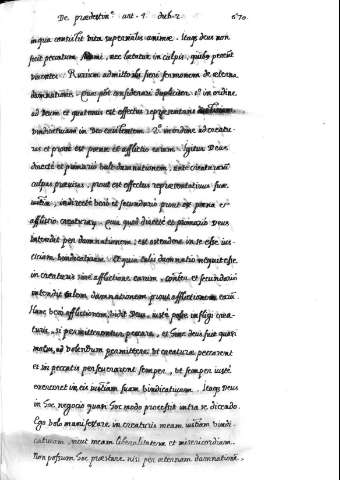 De prædestinᵉ art. 4. dub. 2. 670.
in qua consistit vita supernalis animæ. Itaq; deus non
fecit peccatum, nec lætatur in culpis, quib9
viventes. Rursum admitto fieri sermonem de æterna
damnatione. Quæ pōt considerari dupliciter. 1º in ordine
ad Deum et quatenus est effectus repræsentans
vindicativam in Deo existentem. 2º in ordine ad creatu-
ras et prout est pœna et afflictio earum. Igitur Deus
directè et primario vult damnationem, ante creaturarū
culpas prævisas, prout est effectus repræsentativus suæ
iustitiæ, indirectè verò et secundario prout est pœna et
afflictio creaturarū. Quia quod directè et primario Deus
intendit per damnationem, est ostendere in se esse ius-
titiam vindicativam. Et quia talis damnatio nequit esse
in creaturis sine afflictione earum, et secundario
intendit talem damnationem prout afflictionem earū.
Hanc verò afflictionem, vidit Deus iustè posse infligi crea-
turis, si permitterentur peccare, et hinc deus fuit quasi
motus, ad volendum permittere, ut creaturæ peccarent
et in peccatis perseverarent semper, ut semper iustè
exerceret in eis iustitiam suam vindicativam. Itaq; Deus
in hoc negocio quasi hoc modo processit intra se dicendo.
Ego volo manifestare in creaturis meam iustitiam vindi-
cativam, sicut meam liberalitatem et misericordiam.
Non possum hoc præstare nisi per æternam damnationē,